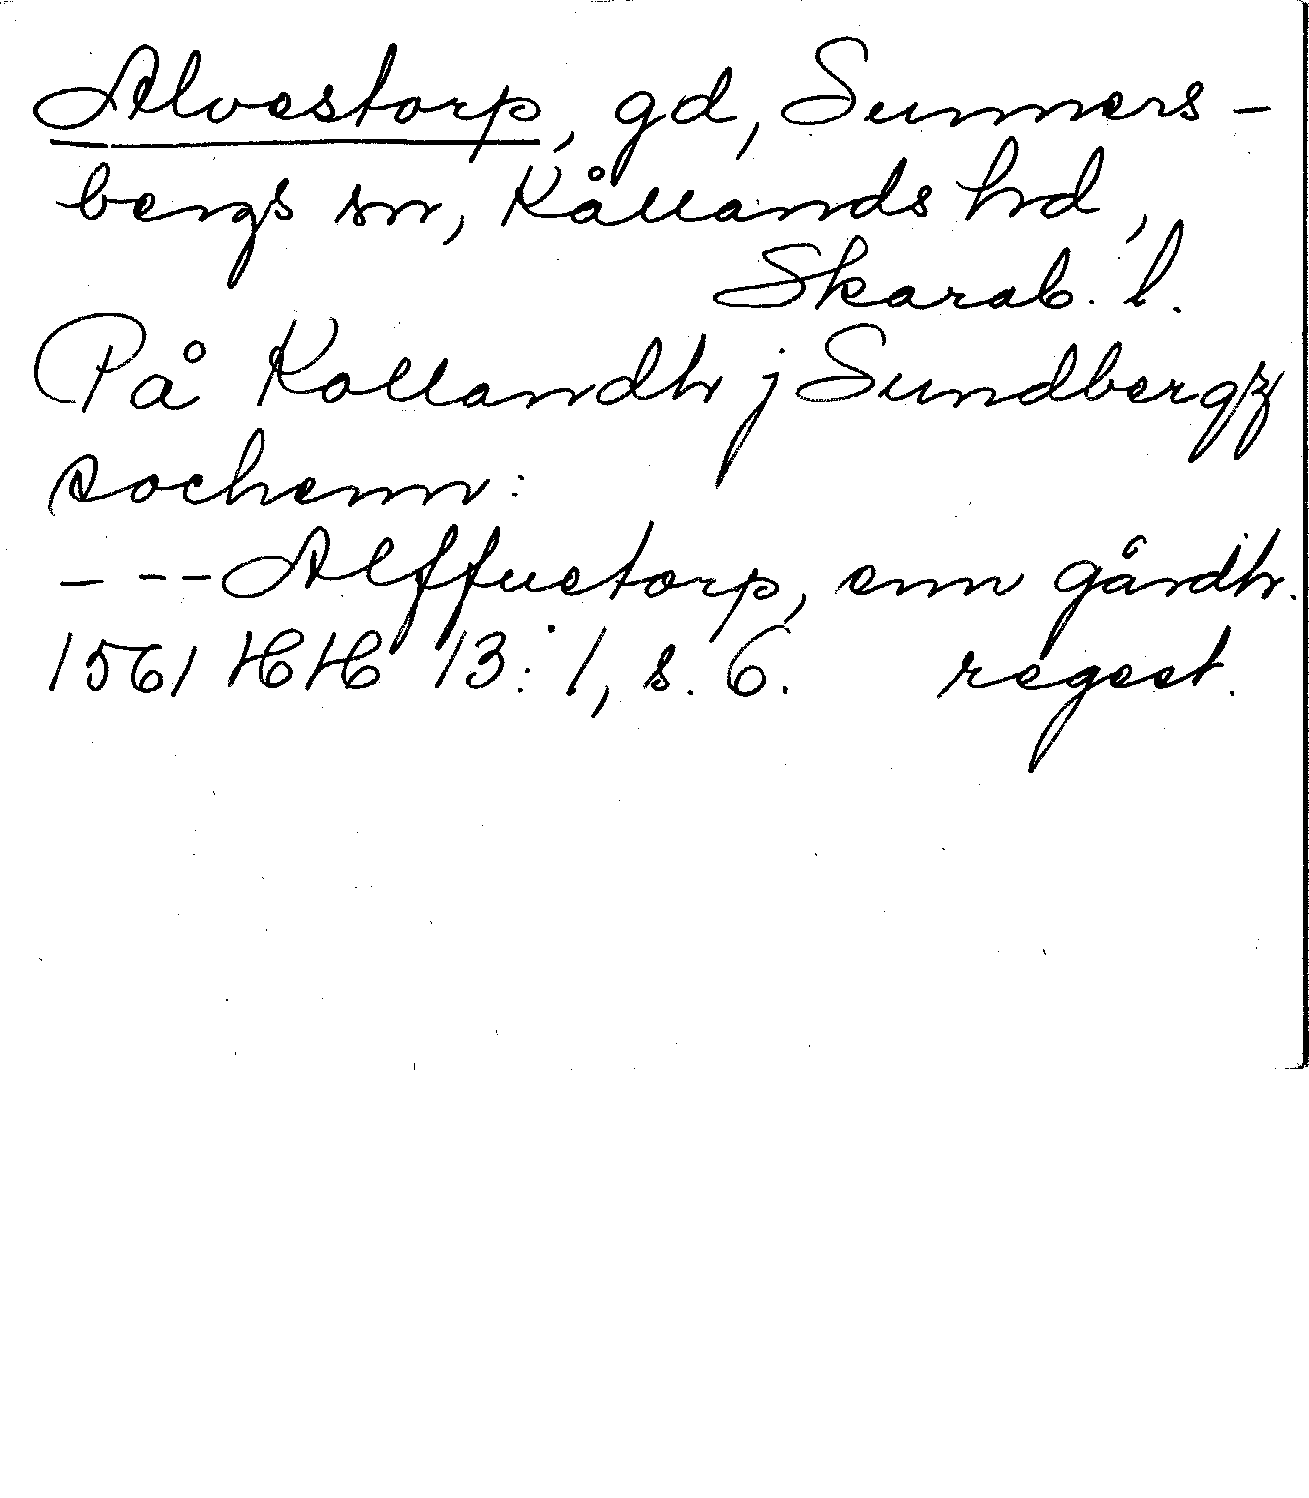 Alvestorp, gd, Sunners-
bergs sn, Kållands hd,
Skarab. l.
På Kollandh j Sundbergz
sochenn:
- -- Alffuetorp, enn gårdh.
1561 HH 13:1, s. 6. regest.